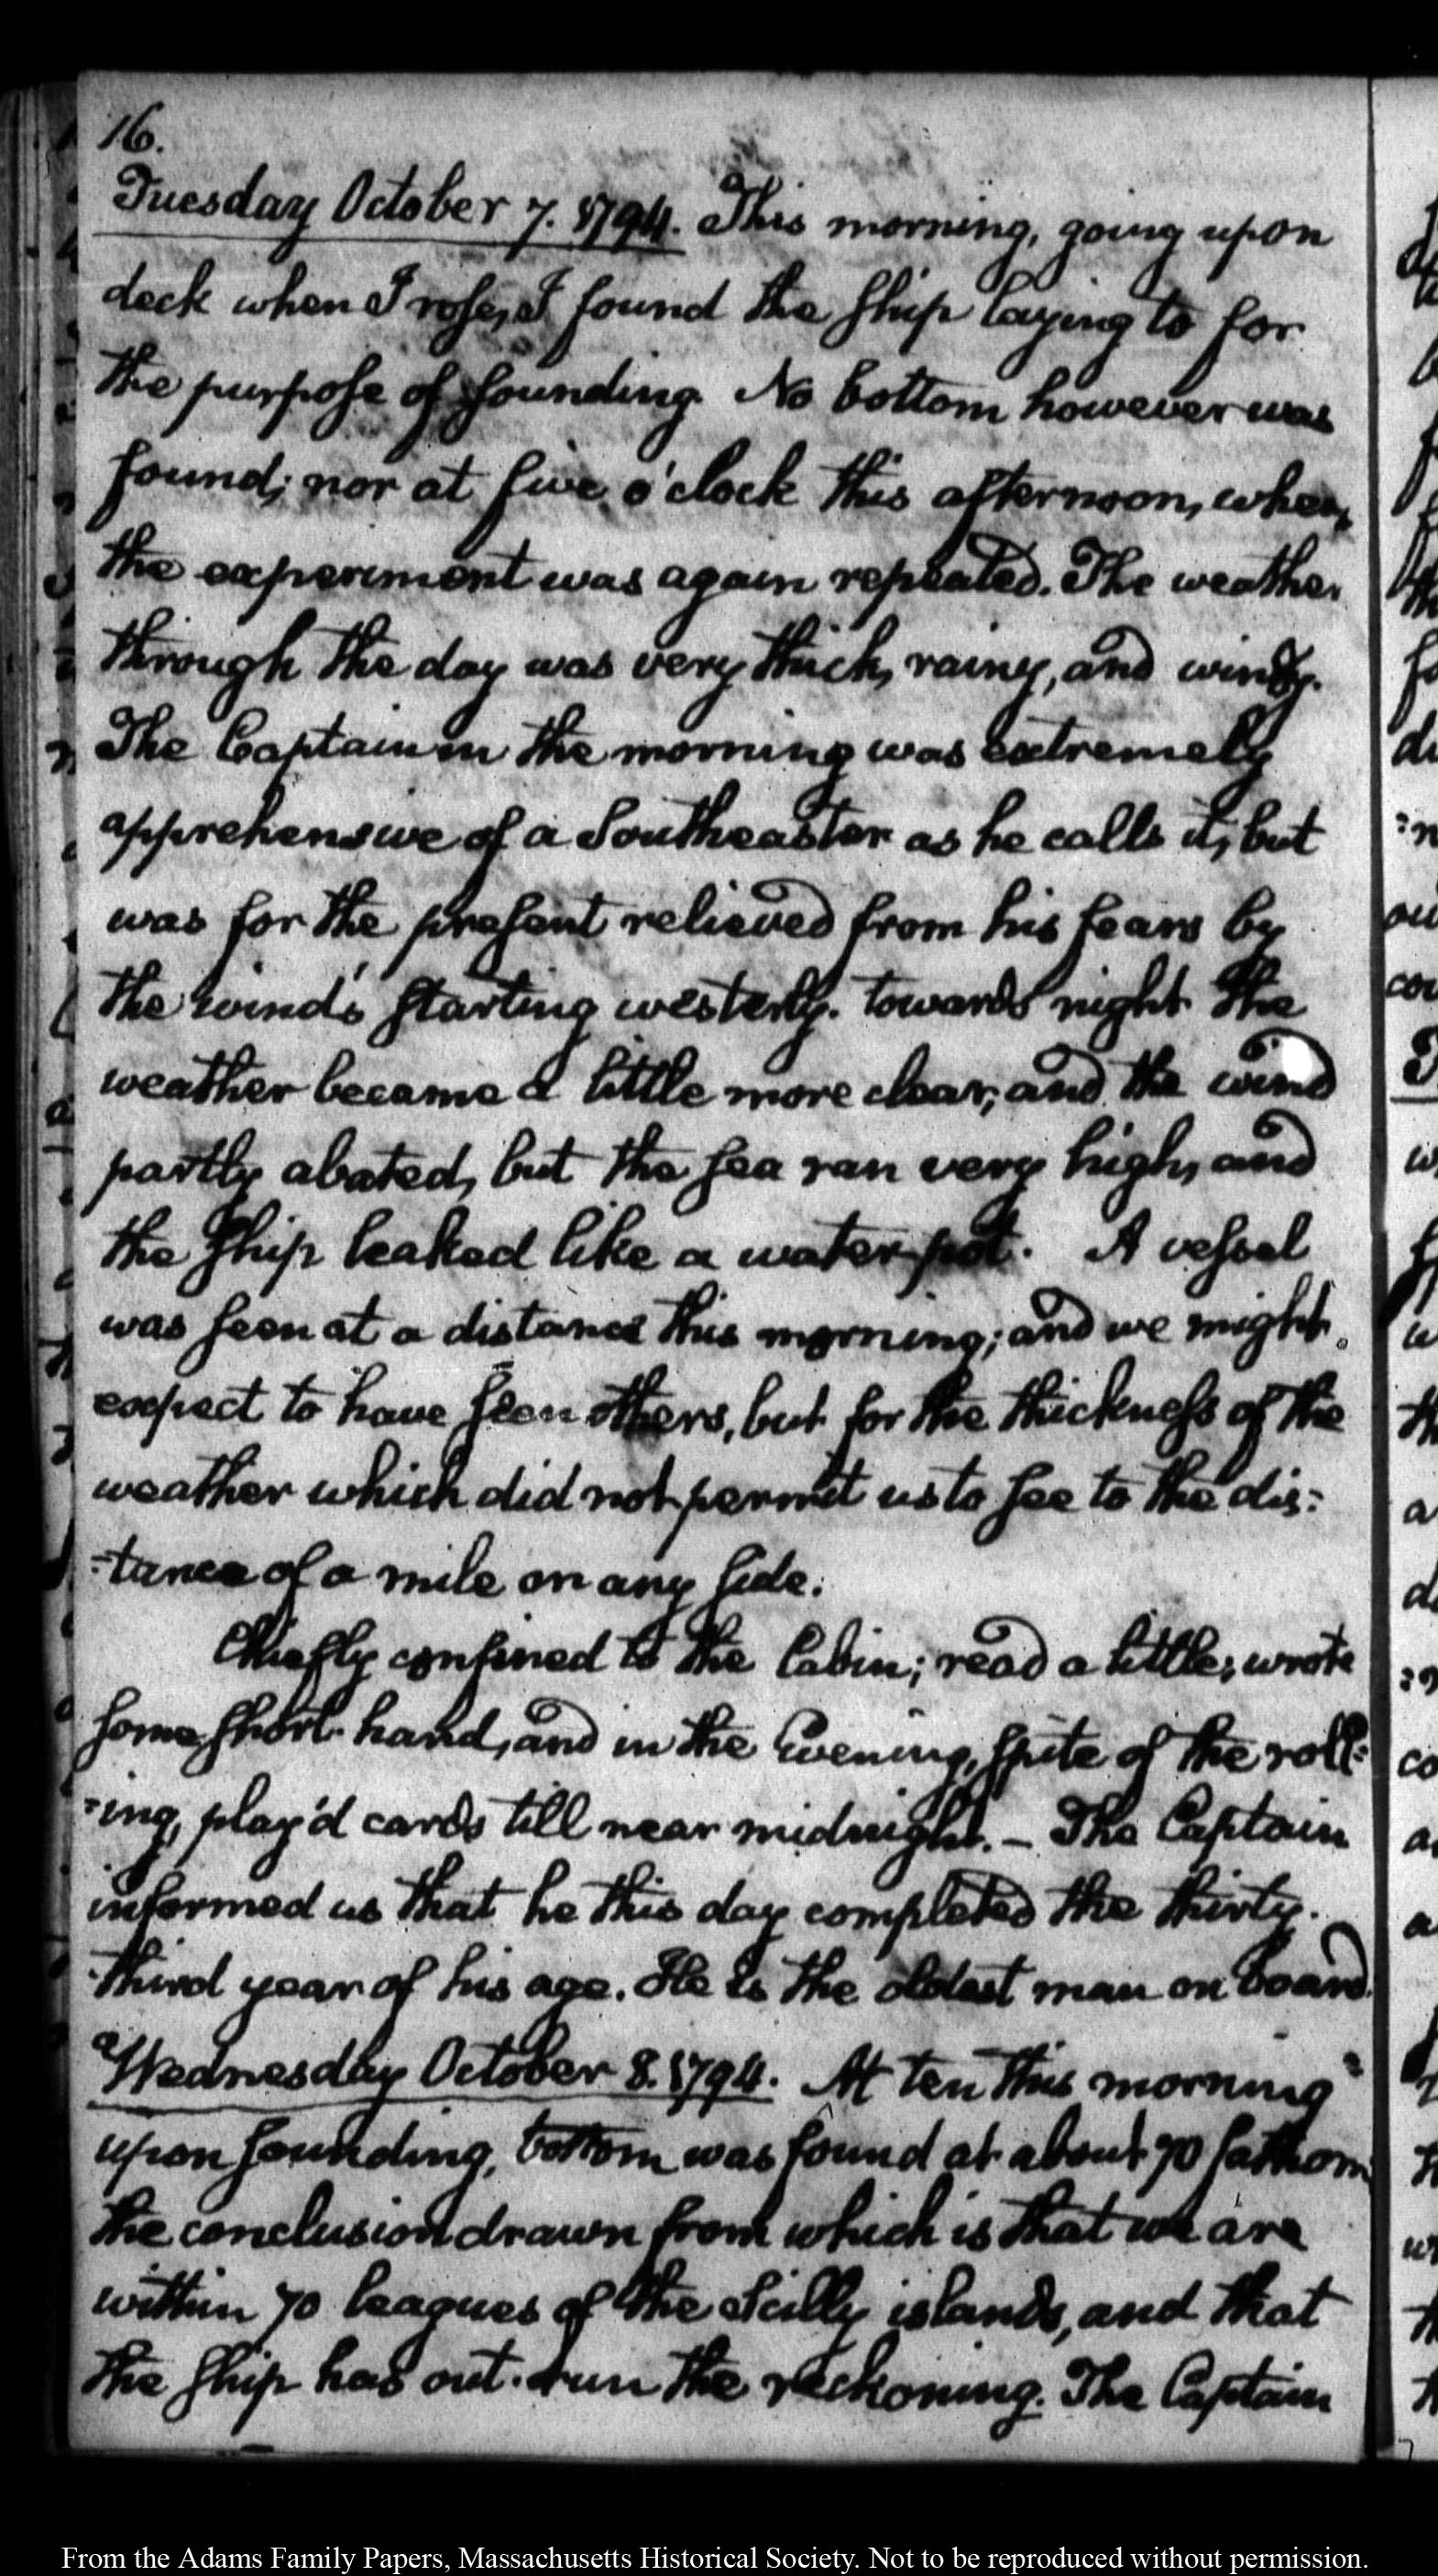 16.
Tuesday October 7. 1794. This morning, going upon
deck when I rose, I found the ship laying to for
the purpose of sounding. No bottom however was
found; nor at five o'clock this afternoon, when
the experiment was again repeated. The weather
through the day was very thick, rainy, and windy.
The Captain in the morning was extremely
apprehensive of a Southeaster as he calls it, but
was for the present relieved from his fears by
the wind's starting westerly. towards night the
weather became a little more clear, and the wind
partly abated, but the sea ran very high, and
the ship leaked like a water pot. A vessel
was seen at a distance this morning; and we might
expect to have seen others, but for the thickness of the
weather which did not permit us to see to the dis-
-tance of a mile on any side.
Chiefly confined to the Cabin; read a little; wrote
some short hand, and in the Evening, spite of the roll-
-ing, play'd cards till near midnight. — The Captain
informed us that he this day completed the thirty-
-third year of his age. He is the oldest man on board.
Wednesday October 8. 1794. At ten this morning
upon sounding, bottom was found at about 70 fathom
the conclusion drawn from which is that we are
within 70 leagues of the Scilly islands, and that
the ship has out-run the reckoning. The Captain
From the Adams Family Papers, Massachusetts Historical Society. Not to be reproduced without permission.